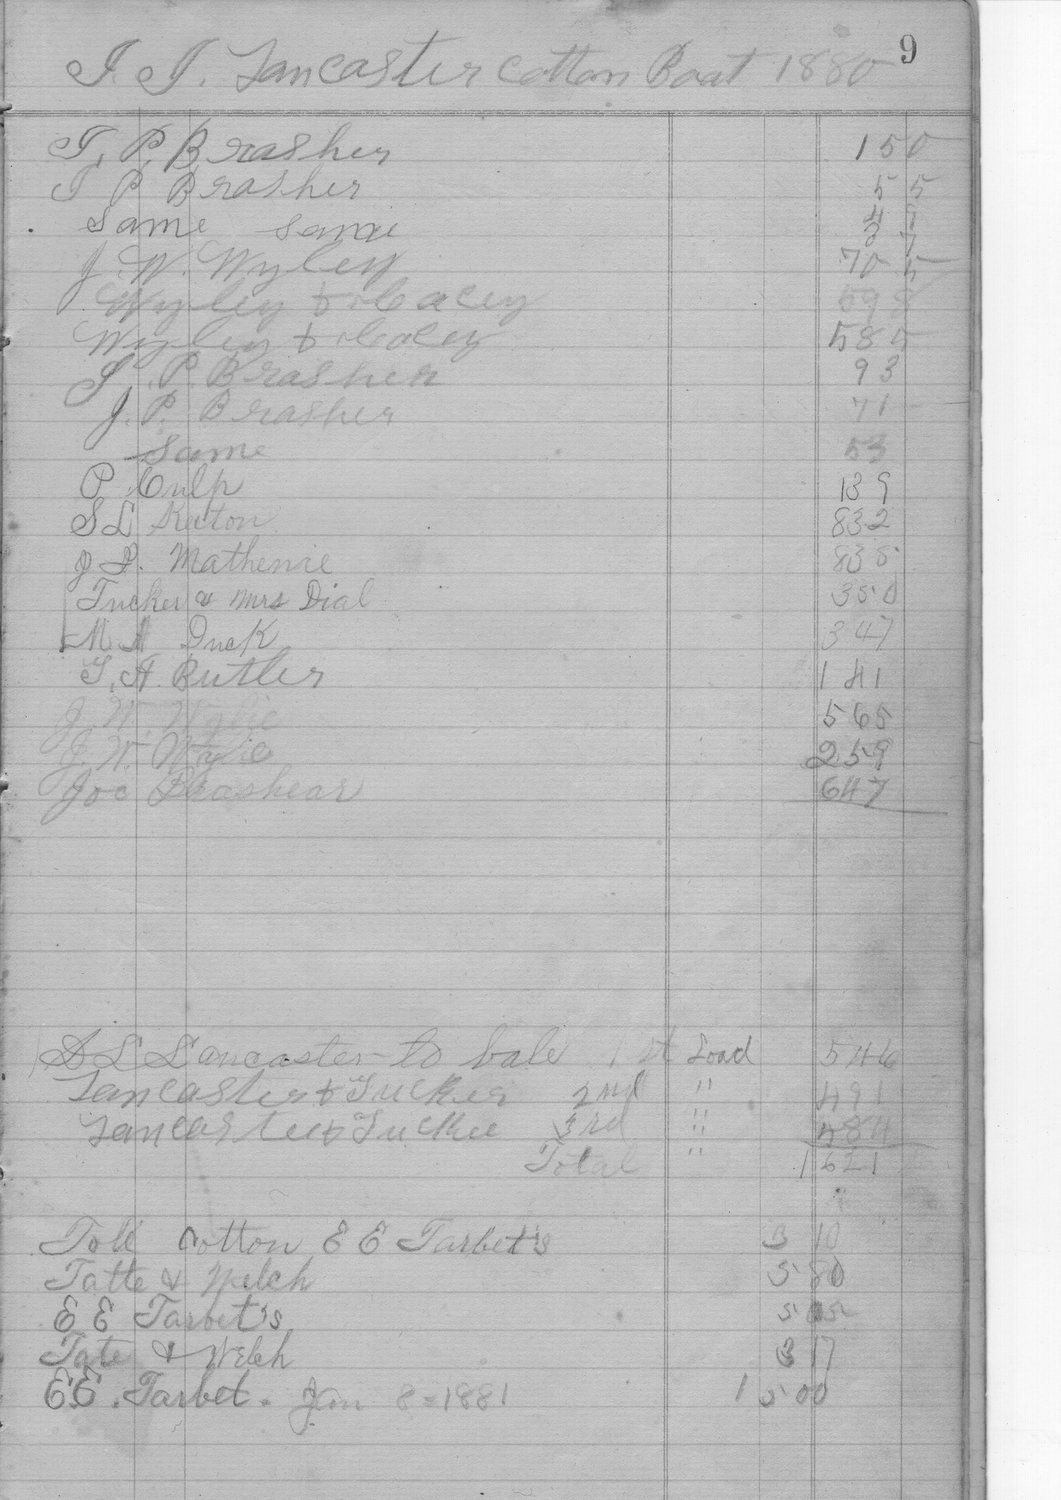 9
J. J. Lancaster Cotton Boat 1880
J. P. Brasher 150
J P Brasher 55
Same Same
J. W. Wyley 705
Wyley & Lacey 598
Wyley & Lacey 585
J. P. Brasher 93
J. P. Brasher 71
Same 53
P. Culp 139
S L Keeton 832
J. P. Mathenie 838
Tucker & Mrs Dial 350
M A Duck 347
T. A. Butler 141
J. W. Wylie 565
J. W. Wylie 259
Joe Brashear 647
S L Lancaster to bale 1st Load 546
Lancaster & Tucker 2nd " 491
Lancaster & Tucker 3rd " 584
Total " 1621
Tole Cotton E E Tarbet's 3 10
Tatte & Welch 5 80
E E Tarbet's 5 05
Tate & Welch 3 17
E.E. Tarbet. Jan 8=1881 1 5 00